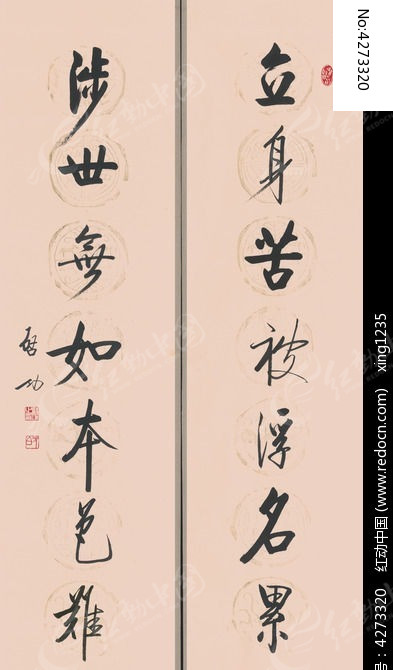 立身苦被浮名累
涉世無如本色難
啓功
No:4273320
编号：4273320 红动中国 (www.redocn.com) xing1235